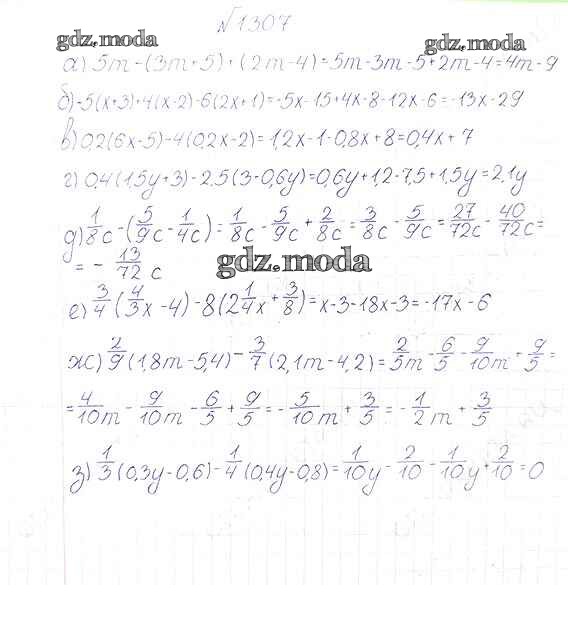 №1307
gdz.moda gdz.moda
а) 5m-(3m+5)+(2m-4)=5m-3m-5+2m-4=4m-9
б)-5(x+3)+4(x-2)-6(2x+1)=-5x-15+4x-8-12x-6=-13x-29
в) 0,2(6x-5)-4(0,2x-2)=1,2x-1-0,8x+8=0,4x+7
г) 0,4(1,5y+3)-2,5(3-0,6y)=0,6y+1,2-7,5+1,5y=2,1y
д) 1/8c-(5/9c-1/4c)=1/8c-5/9c+2/8c=3/8c-5/9c=27/72c-40/72c=
=-13/72 c
gdz.moda
е) 3/4(4/3x-4)-8(2 1/4x+3/8)=x-3-18x-3=-17x-6
ж) 2/9(1,8m-5,4)-3/7(2,1m-4,2)=2/5m-6/5-9/10m+9/5=
=4/10m-9/10m-6/5+9/5=-5/10m+3/5=-1/2m+3/5
з) 1/3(0,3y-0,6)-1/4(0,4y-0,8)=1/10y-2/10-1/10y+2/10=0